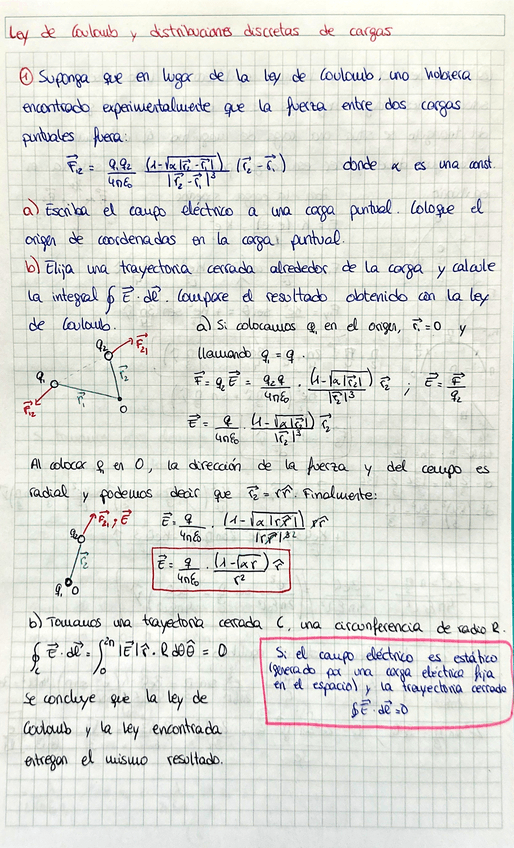 Ley de Coulomb y distribuciones discretas de cargas
① Suponga que en lugar de la ley de Coulomb, uno hubiera
encontrado experimentalmente que la fuerza entre dos cargas
puntuales fuera:
F⃗₁₂ = q₁q₂/4πε₀ (1-√α|r⃗₂-r⃗₁|)/|r⃗₂-r⃗₁|³ (r⃗₂-r⃗₁) donde α es una const.
a) Escriba el campo eléctrico a una carga puntual. Coloque el
origen de coordenadas en la carga puntual.
b) Elija una trayectoria cerrada alrededor de la carga y calcule
la integral ∮ E⃗·dl⃗. Compare el resultado obtenido con la ley
de Coulomb.
a) Si colocamos q₁ en el origen, r⃗₁=0 y
llamando q₁=q.
F⃗=q₂E⃗ = q₂q/4πε₀ · (1-√α|r⃗₂|)/|r⃗₂|³ r⃗₂ ; E⃗=F⃗/q₂
E⃗ = q/4πε₀ · (1-√α|r⃗₂|)/|r⃗₂|³ r⃗₂
q₂ F⃗₂₁
q₁ r⃗₂
F⃗₁₂ r⃗₁ O
Al colocar q₁ en O, la dirección de la fuerza y del campo es
radial y podemos decir que r⃗₂=rr̂. Finalmente:
F⃗₂₁, E⃗
q₂
r⃗₂
q₁ O
E⃗= q/4πε₀ · (1-√α|rr̂|)/|rr̂|³² rr̂
E⃗= q/4πε₀ · (1-√αr)/r² r̂
b) Tomamos una trayectoria cerrada C, una circunferencia de radio R.
∮c E⃗·dl⃗ = ∫₀²π |E⃗|r̂·R dθθ̂ = 0
Se concluye que la ley de
Coulomb y la ley encontrada
entregan el mismo resultado.
Si el campo eléctrico es estático
(generado por una carga eléctrica fija
en el espacio) y la trayectoria cerrada
∮E⃗·dl⃗=0